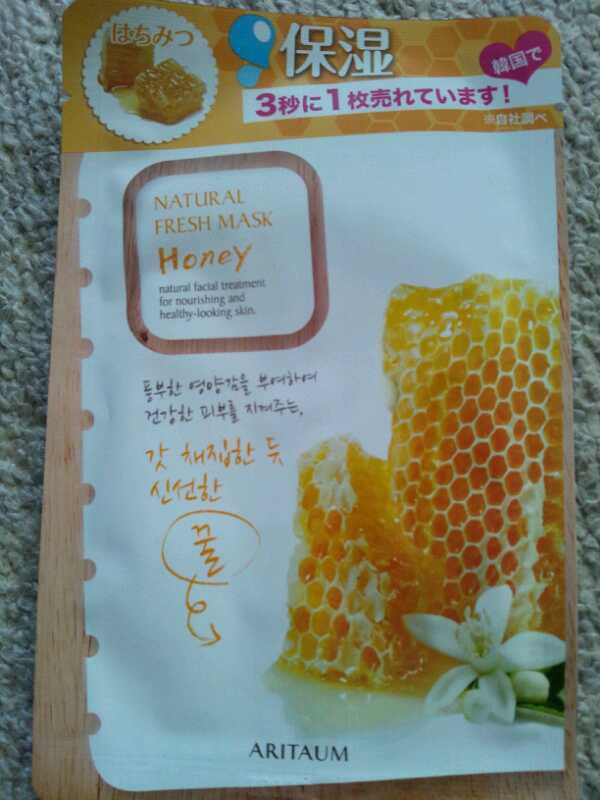 はちみつ
保湿
韓国で
3秒に1枚売れています!
※自社調べ
NATURAL
FRESH MASK
Honey
natural facial treatment
for nourishing and
healthy-looking skin.
풍부한 영양감을 부여하여
건강한 피부를 지켜주는,
갓 채집한 듯
신선한
꿀
ARITAUM